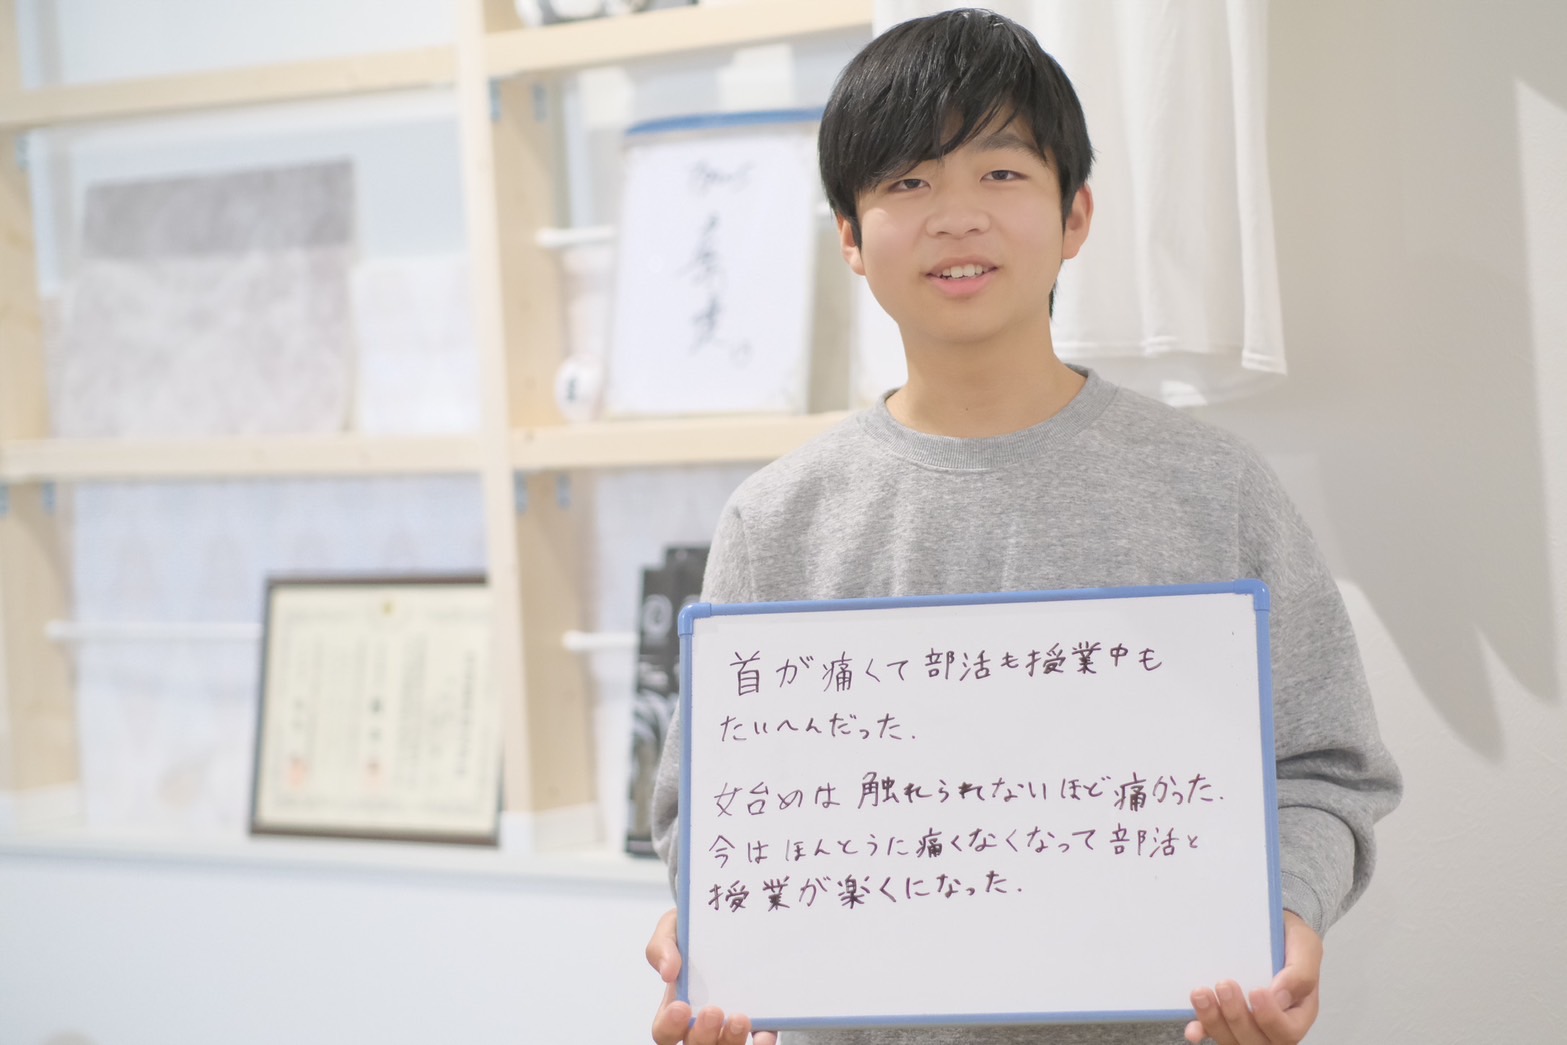 首が痛くて部活も授業中も
たいへんだった.
始めは触れられないほど痛かった.
今はほんとうに痛くなくなって部活と
授業が楽くになった.